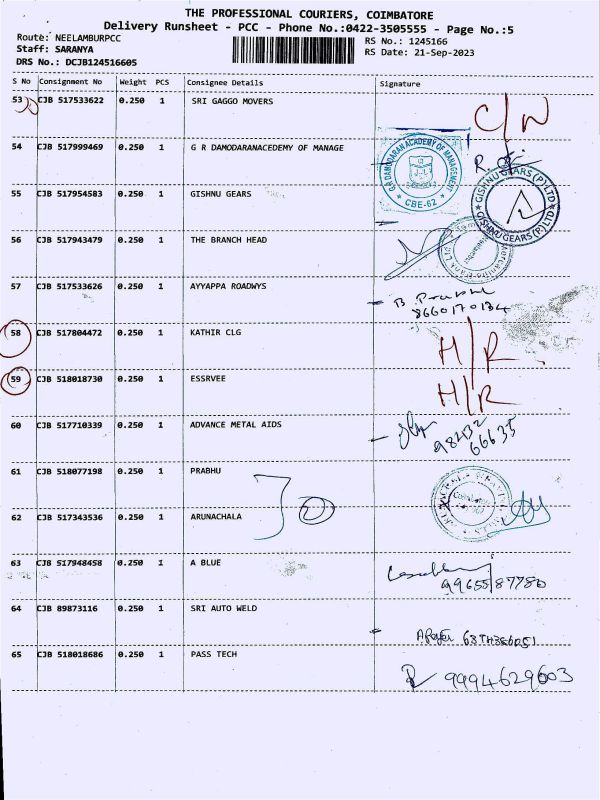 THE PROFESSIONAL COURIERS, COIMBATORE
Delivery Runsheet - PCC - Phone No.:0422-3505555 - Page No.:5
Route: NEELAMBURPCC
RS No.: 1245166
Staff: SARANYA
RS Date: 21-Sep-2023
DRS No.: DCJB124516605
S No Consignment No Weight PCS Consignee Details Signature
53 CJB 517533622 0.250 1 SRI GAGGO MOVERS C/N
54 CJB 517999469 0.250 1 G R DAMODARANACEDEMY OF MANAGE
G.R DAMODARAN ACADEMY OF MANAGEMENT
CBE-62
55 CJB 517954583 0.250 1 GISHNU GEARS
GISHNU GEARS (P) LTD
GISHNU GEARS (P) LTD
56 CJB 517943479 0.250 1 THE BRANCH HEAD
57 CJB 517533626 0.250 1 AYYAPPA ROADWYS
8660170134
58 CJB 517804472 0.250 1 KATHIR CLG H/R
59 CJB 518018730 0.250 1 ESSRVEE H/R
60 CJB 517710339 0.250 1 ADVANCE METAL AIDS
98432
66635
61 CJB 518077198 0.250 1 PRABHU
62 CJB 517343536 0.250 1 ARUNACHALA
63 CJB 517948458 0.250 1 A BLUE
9965587780
64 CJB 89873116 0.250 1 SRI AUTO WELD
65 CJB 518018686 0.250 1 PASS TECH
9994629603